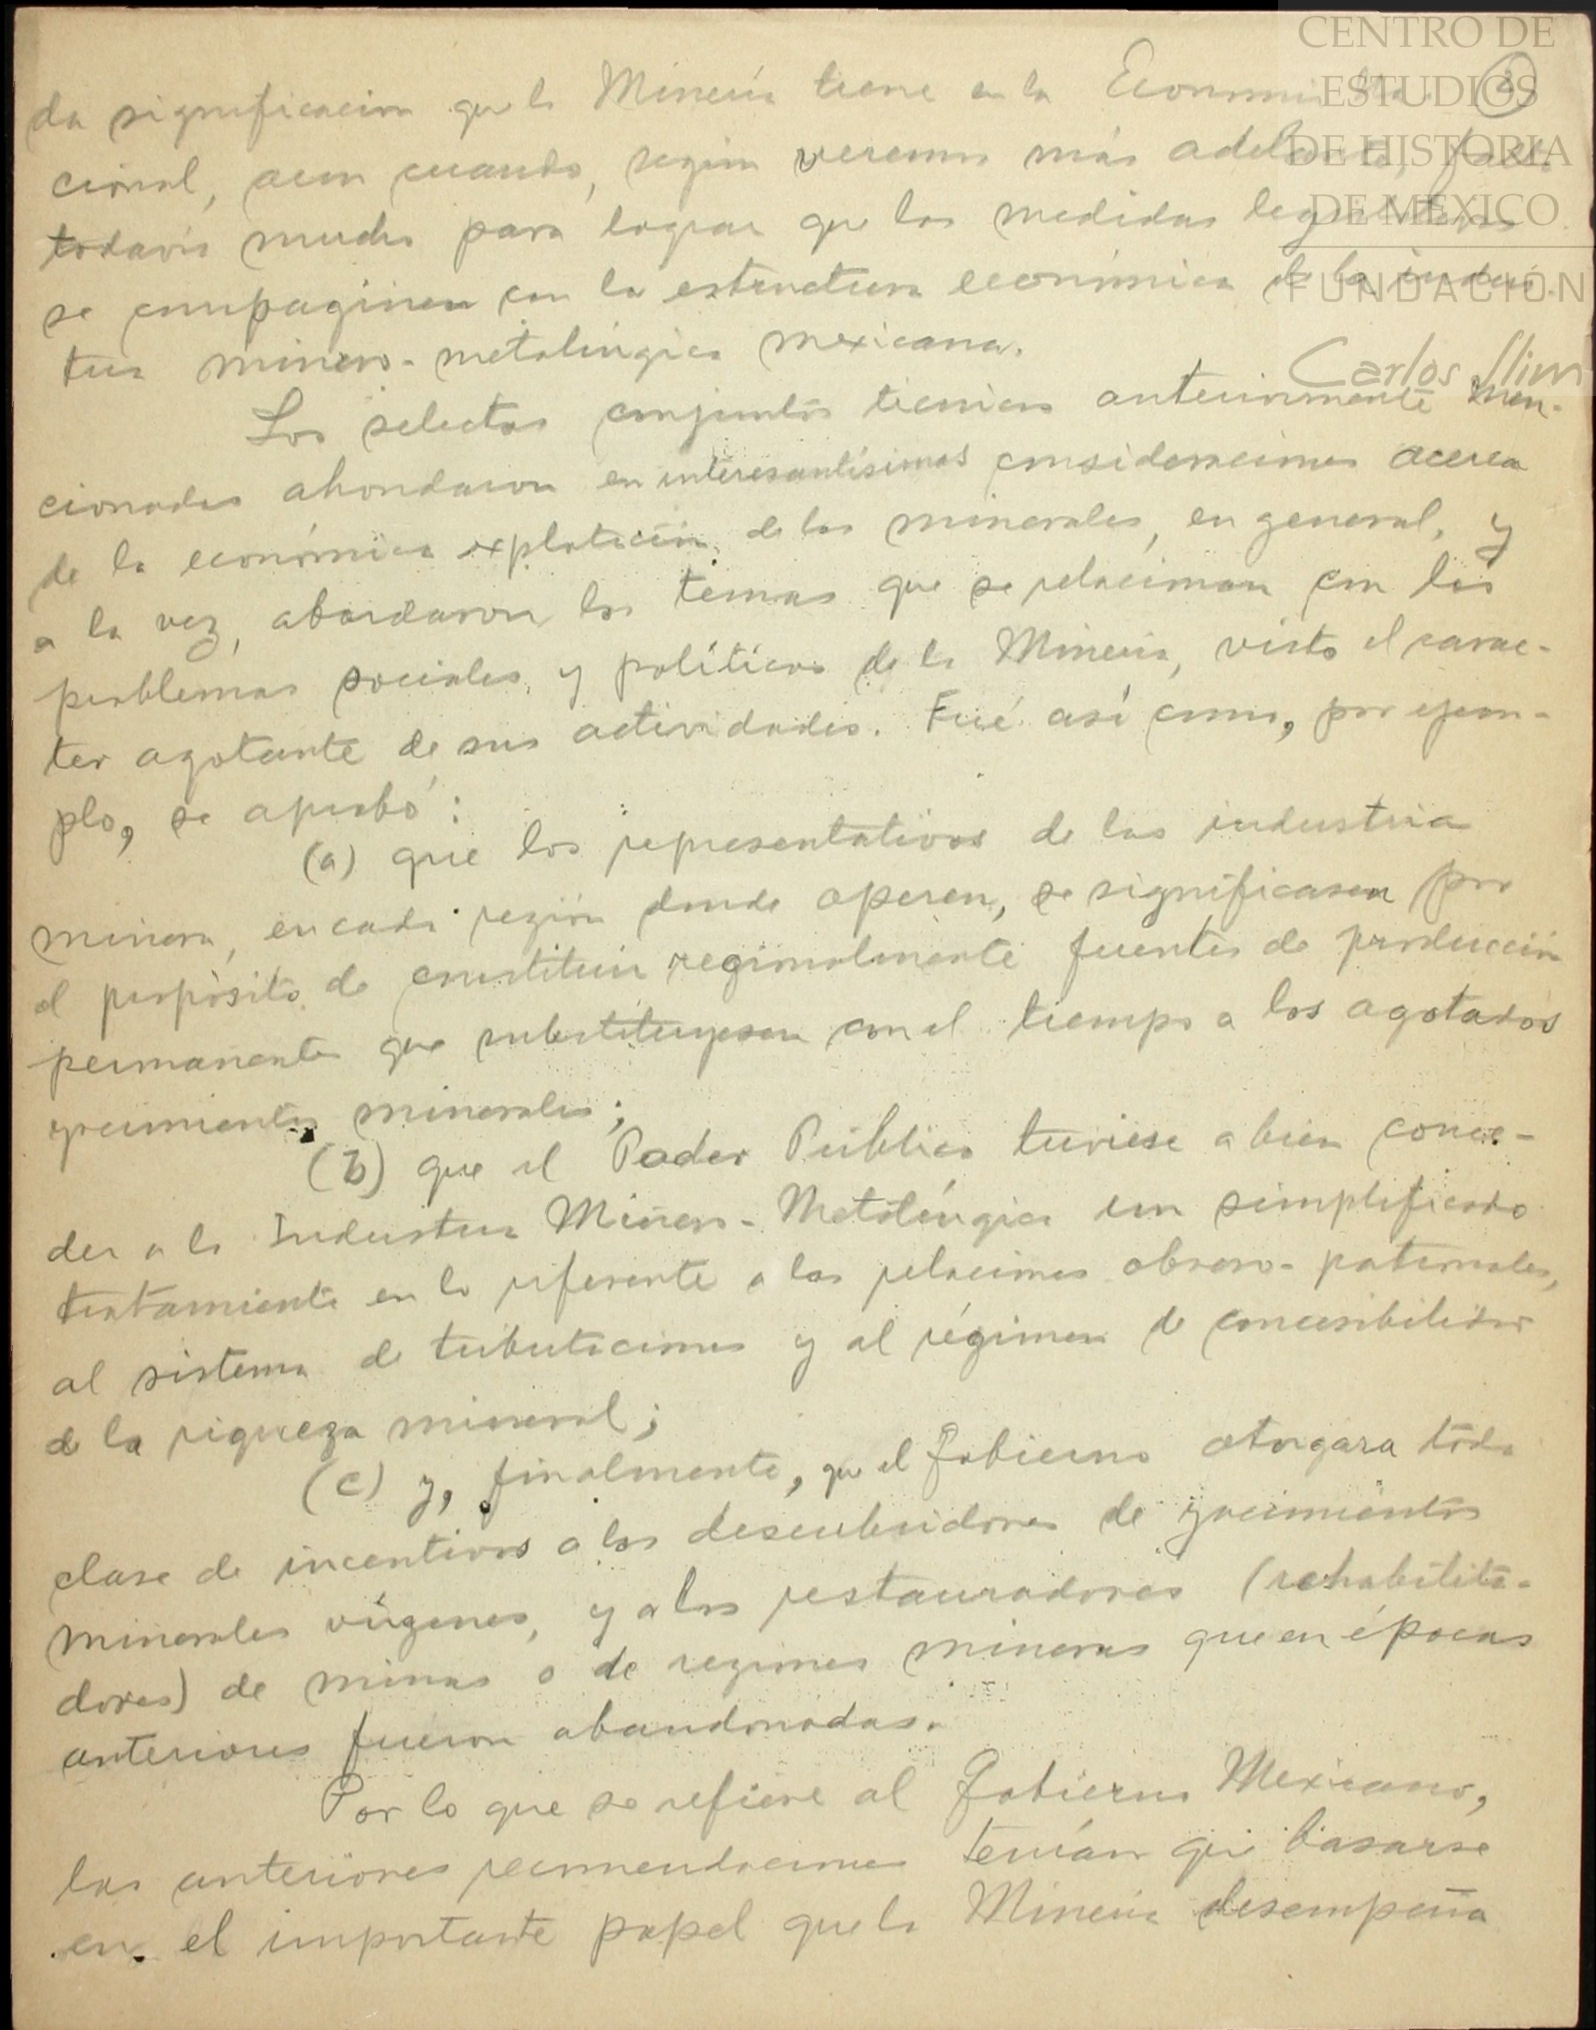 CENTRO DE
ESTUDIOS
DE HISTORIA
DE MEXICO
FUNDACIÓN
Carlos Slim
da significacion que la Minería tiene en la Economía Na-
cional, aun cuando, según veremos más adelante, falta
todavía mucho para lograr que las medidas legislativas
se compaginen con la estructura económica de la indus-
tria minero-metalúrgica mexicana.
Los selectos conjuntos técnicos anteriormente men-
cionados ahondaron en interesantísimas consideraciones acerca
de la económica explotación de los minerales, en general, y
a la vez, abordaron los temas que se relacionan con los
problemas sociales y políticos de la Minería, visto el carac-
ter agotante de sus actividades. Fué así como, por ejem-
plo, se aprobó:
(a) que los representativos de las industria
minera, en cada región donde operen, se significasen por
el propósito de constituir regionalmente fuentes de producción
permanente que substituyesen con el tiempo a los agotados
yacimientos minerales;
(b) que el Poder Público tuviese a bien conce-
der a la Industria Minero-Metalúrgica un simplificado
tratamiento en lo referente a las relaciones obrero-patronales,
al sistema de tributaciones y al régimen de concesibilidad
de la riqueza mineral;
(c) y, finalmente, que el Gobierno otorgara toda
clase de incentivos a los descubridores de yacimientos
minerales vírgenes, y a los restauradores (rehabilita-
dores) de minas o de regiones mineras que en épocas
anteriores fueron abandonadas.
Por lo que se refiere al Gobierno Mexicano,
las anteriores recomendaciones tenían que basarse
en el importante papel que la Minería desempeña